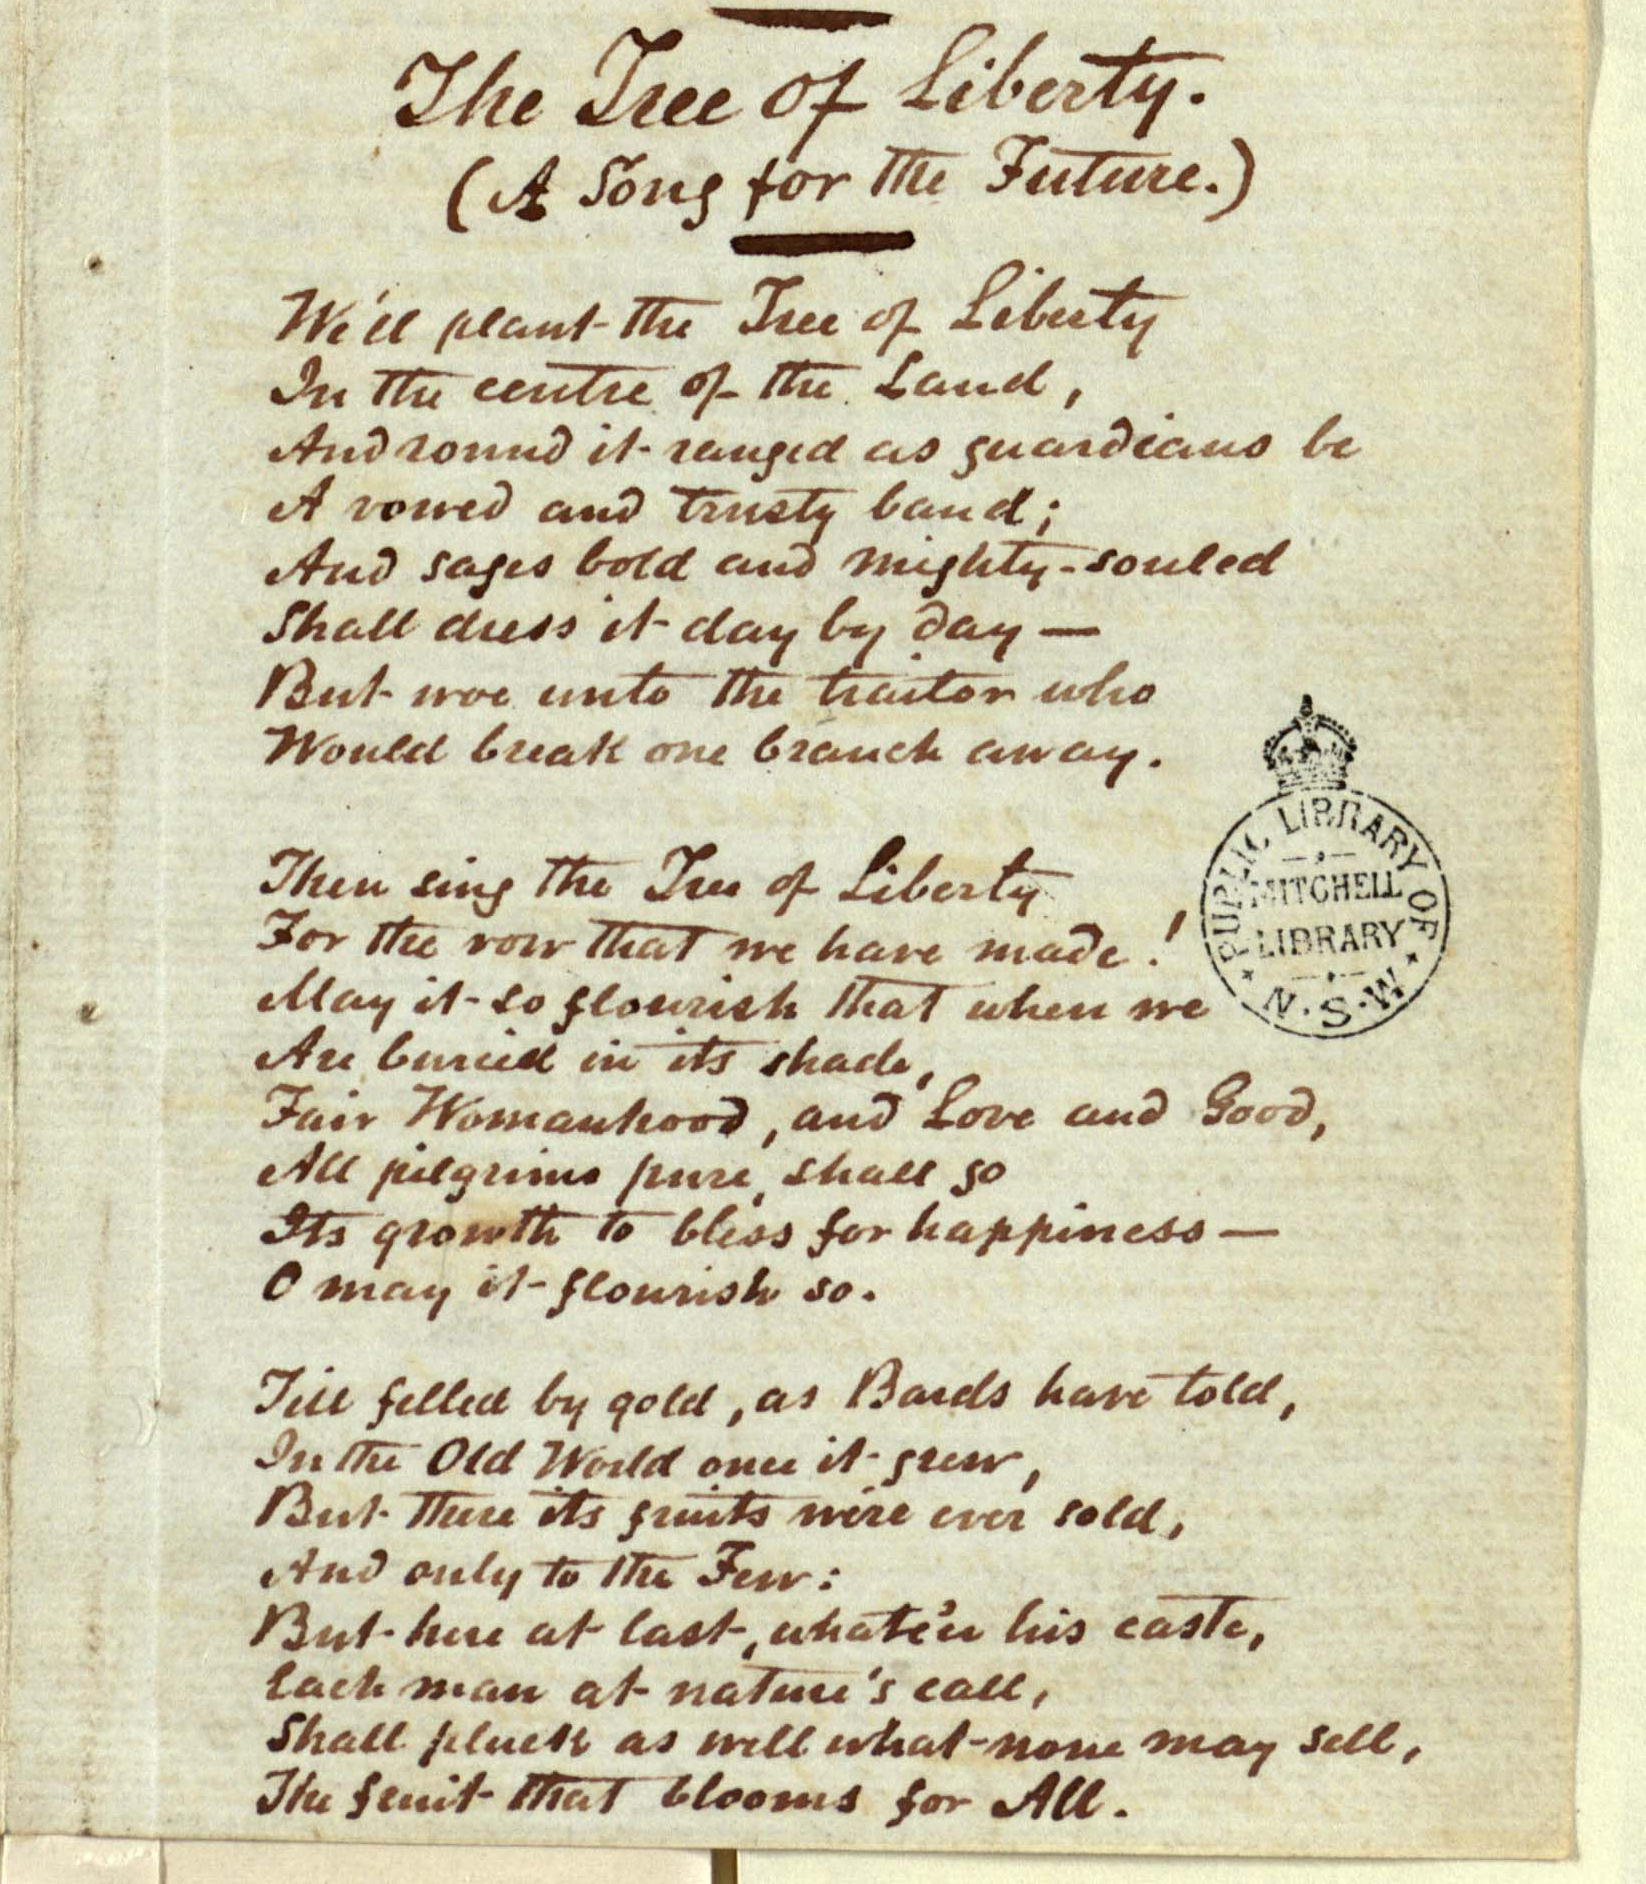 The Tree of Liberty.
(A Song for the Future.)
We'll plant the Tree of Liberty
In the centre of the Land,
And round it ranged as guardians be
A vowed and trusty band;
And sages bold and mighty-souled
Shall dress it day by day—
But woe unto the traitor who
Would break one branch away.
Then sing the Tree of Liberty
For the vow that we have made!
May it so flourish that when we
Are buried in its shade,
Fair Womanhood, and Love and Good,
All pilgrims pure, shall go
Its growth to bless for happiness—
O may it flourish so.
Till felled by gold, as Bards have told,
In the Old World once it grew,
But there its fruits were ever sold,
And only to the Few:
But here at last, whate'er his caste,
Each man at nature's call,
Shall pluck as well what none may sell,
The fruit that blooms for All.
PUBLIC LIBRARY OF
MITCHELL
LIBRARY
N.S.W